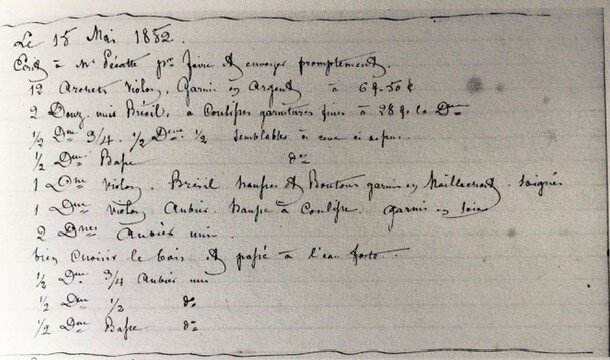 Le 15 Mai 1852.
Ecrit à Mr Pécatte pr faire et envoyer promptement.
12 Archets Violon, Garni en Argent à 6 f. 50 c
2 Douz. unis Brésil, à Coulisses garnitures fines à 28 f. la Dne
1/2 Dne 3/4. 1/2 Dne 1/2 semblables à ceux ci dessus.
1/2 Dne Basse do
1 Dne violon. Brésil hausses et Boutons garnis en Maillechort. Soignés
1 Dne violon Aubier. hausse à Coulisse. garni en soie
2 Dnes Aubier unis.
bien choisir le bois et passé à l'eau forte.
1/2 Dne 3/4 Aubier uni
1/2 Dne 1/2 do
1/2 Dne Basse do